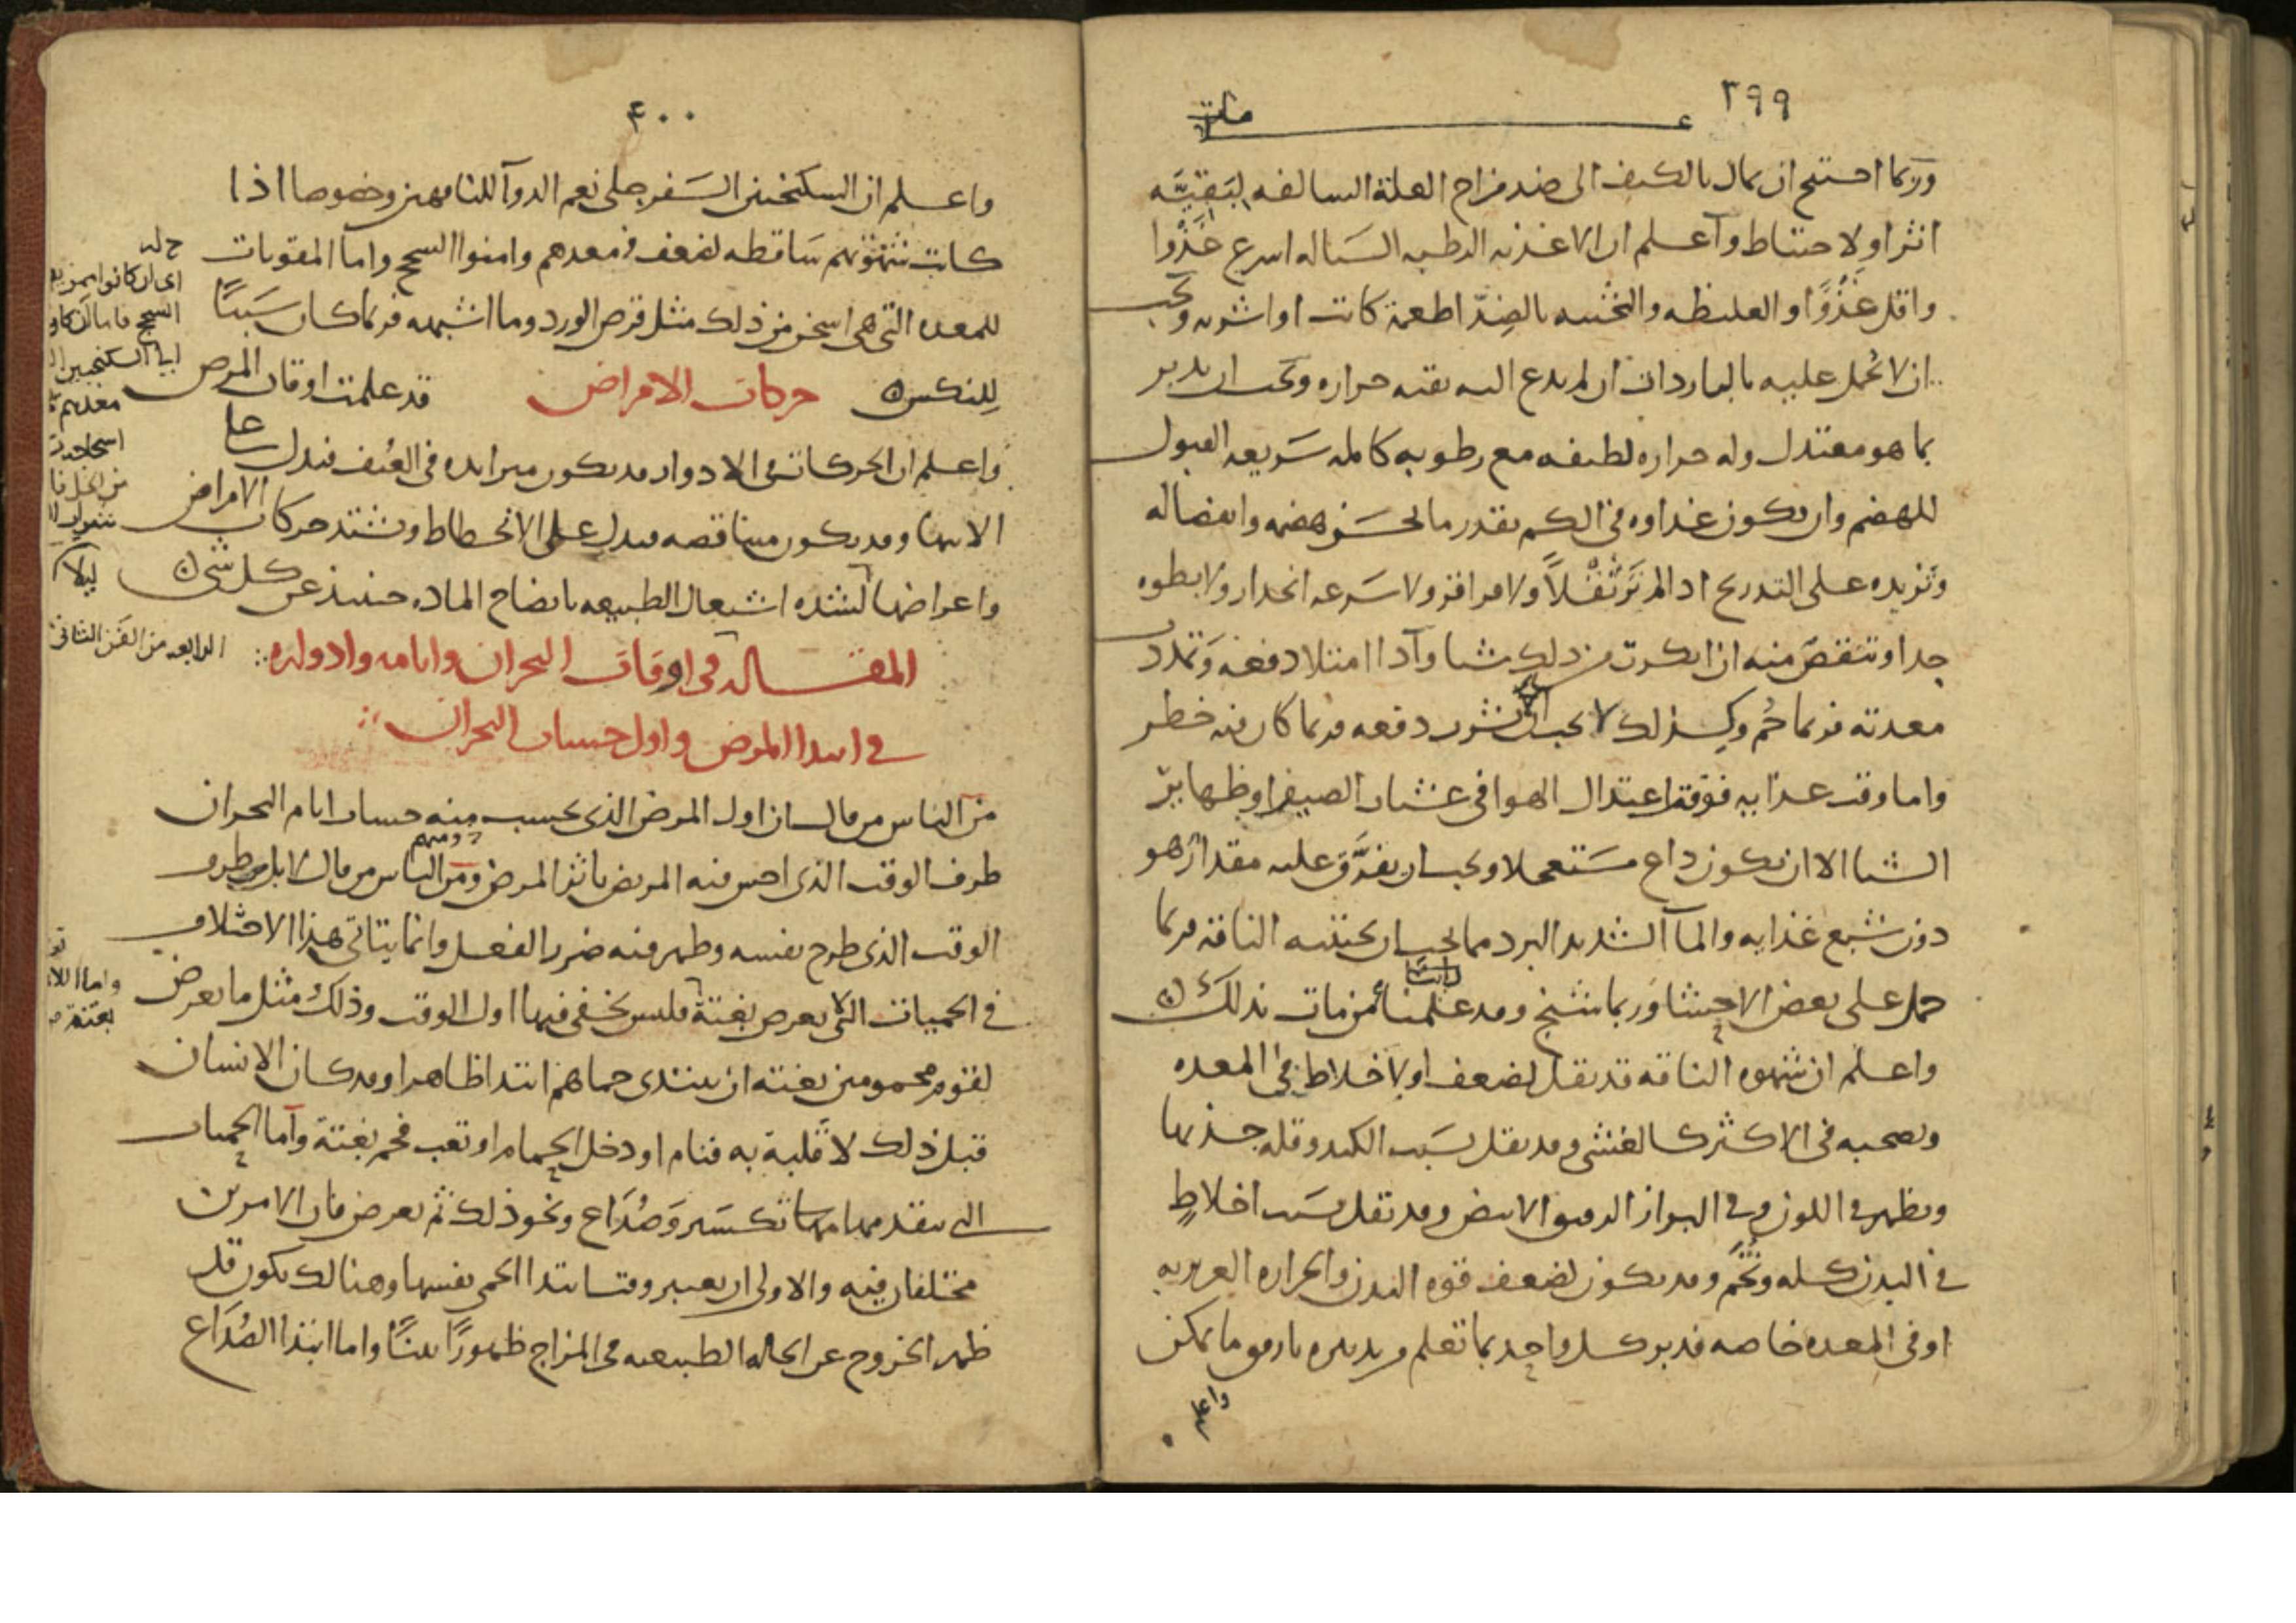 ٣٩٩
وربما احتيج ان يمال بالكيف الى ضد مزاج العلة السالفه لبقيه
اثر او لاحتياط وآعلم ان الاغذيه الرطبه السياله اسرع غذوا
واقل غذوًا والغليظه والثخينه بالضِدّ اطعمة كانت او اشربه ويجب
ان لا يحمل عليه بالباردات ان لم يدع اليه بقيه حراره ويجب ان يدبر
بما هو معتدل وله حراره لطيفه مع رطوبه كامله سَريعه القبول
للهضم وان يكون غذاوه في الكم بقدر ما يحسَن هضمه وانفصاله
وتزيده على التدريج اذا لم تَر ثقلاً ولا قراقر ولا سَرعه انحدار ولا بطوه
جدا وتنقصَ منه ان انكرت من ذلك شيا وآذا امتلا دفعه وتمدد
معدته فربما حُم وكذلك لا يجب ان يشرب دفعه فربما كان فيه خطر
واما وقت غذايه فوقت اعتدال الهوا في عشيات الصيف او ظهاير
الشتا الا ان يكون داع مسَتعجلا ويجب ان يفرَّق عليه مقدار هو
دون شبع غذايه والمآ الشديد البرد مما يجب ان يجتنبه الناقه فربما
حمل على بعض الاحشا وَربما شنج وقد علمنا من مات بذلك
واعلم ان شهوه الناقه قد تقل لضعف او لاخلاط في المعده
ويصحبه في الاكثر كالغشى وقد تقل بسَبب الكبد وقله جذبها
ويظهر في اللون وفي البراز الرقيق الابيض وقد تقل بسَبب اخلاطٍ
في البدن كله وتُخَم وقد يكون لضعف قوه البدن والحراره الغريزيه
او في المعده خاصه فدبر كل واحد بما تعلم وبتدبيره بارفق ما يمكن
واعلم
٤٠٠
واعلم ان السكنجبين السَفرجلي نعم الدوآ للناقهين وخصوصا اذا
كانت شهوتهم سَاقطه لضعف في معدهم وامنوا السحج واما المقويات
للمعده التي هي اسخن من ذلك مثل قرص الورد وما اشبهه فربما كان سَببًا
لِلنكس حركات الامراض قد علمت اوقات المرض
واعلم ان الحركات في الادوار قد يكون متزايده في العُنف فيدل على
الانتها وقد يكون متناقصه فيدل على الانحطاط وتشتد حركات الامراض
واعراضها لشده اشتغال الطبيعه بانضاج الماده حينيذ عن كل شي
المقاله في اوقات البحران وايامه وادواره الرابعه من الفَن الثانى
في ابتدا المرض واول حساب البحران
من الناس من قال ان اول المرض الذي يحسب منه حساب ايام البحران
طرف الوقت الذي احس فيه المريض باثر المرض ومن الناس من قال لا بل طرف
الوقت الذي طرح نفسه وظهر فيه ضرر الفعل وانما يتاتى هذا الاختلاف
في الحميات التي لا يعرض بغتة فليس يخفى فيها اول الوقت وذلك مثل ما يعرض
لقوم محمومين بغته ان يبتدى حماهم ابتدا ظاهرا وقد كان الانسان
قبل ذلك لا قلبة به فنام او دخل الحمام او تعب فحم بغتة وآما الحميات
التي يتقدمها تكسَير وَصُدَاع ونحو ذلك ثم يعرض فان الامرين
مختلفان فيه والاولى ان يعتبر وقت ابتدا الحمى نفسها وهنالك يكون قد
ظهر الخروج عن الحاله الطبيعيه في المزاج ظهورًا بينًا واما ابتدا الصُدَاع